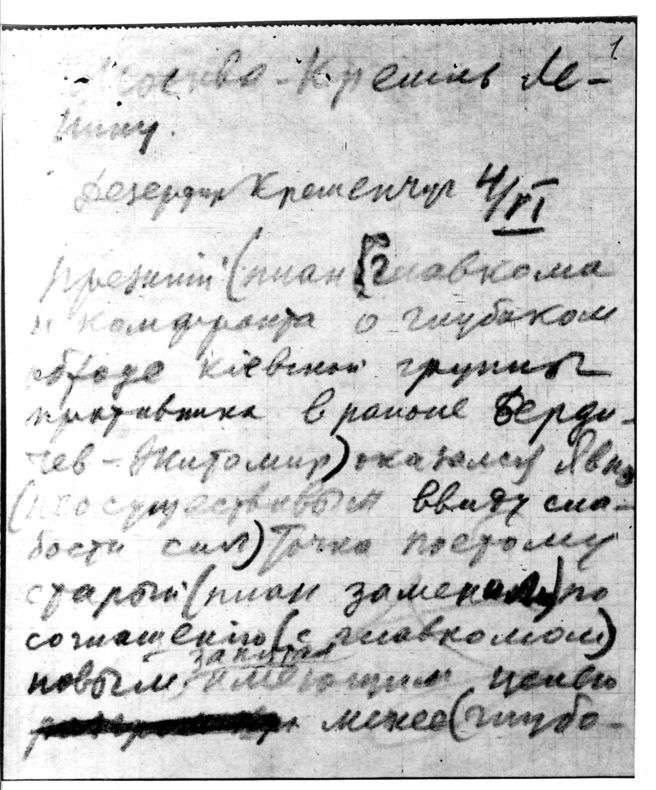 1
Москва - Кремль Ле-
нину.
Кременчуг 4/VI
Прежний (план главкома
и комфронта о глубоком
обходе кiевской группы
противника в районе Берди-
чев - Житомир) оказался явно
(неосуществивым ввиду сла-
бости сил) Точка поэтому
старый (план заменили) по
соглашенiю (с главкомом)
запятая
новым, имеющим целью
менее (глубо-